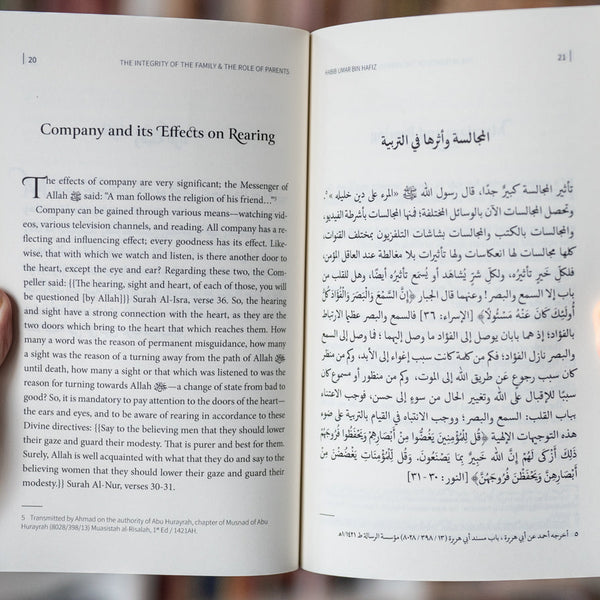 20
THE INTEGRITY OF THE FAMILY & THE ROLE OF PARENTS
Company and its Effects on Rearing
The effects of company are very significant; the Messenger of
Allah ﷺ said: “A man follows the religion of his friend…”⁵
Company can be gained through various means—watching vid-
eos, various television channels, and reading. All company has a re-
flecting and influencing effect; every goodness has its effect. Like-
wise, that with which we watch and listen, is there another door to
the heart, except the eye and ear? Regarding these two, the Com-
peller said: {{The hearing, sight and heart, of each of those, you will
be questioned [by Allah]}} Surah Al-Isra, verse 36. So, the hearing
and sight have a strong connection with the heart, as they are the
two doors which bring to the heart that which reaches them. How
many a word was the reason of permanent misguidance, how many
a sight was the reason of a turning away from the path of Allah ﷻ
until death, how many a sight or that which was listened to was the
reason for turning towards Allah ﷻ—a change of state from bad to
good? So, it is mandatory to pay attention to the doors of the heart—
the ears and eyes, and to be aware of rearing in accordance to these
Divine directives: {{Say to the believing men that they should lower
their gaze and guard their modesty. That is purer and best for them.
Surely, Allah is well acquainted with what that they do and say to the
believing women that they should lower their gaze and guard their
modesty.}} Surah Al-Nur, verses 30-31.
5 Transmitted by Ahmad on the authority of Abu Hurayrah, chapter of Musnad of Abu
Hurayrah (8028/398/13) Muasistah al-Risalah, 1ˢᵗ Ed / 1421AH.
HABIB UMAR BIN HAFIZ
21
المجالسة وأثرها في التربية
تأثير المجالسة كبيرٌ جدًا، قال رسول الله ﷺ «المرء على دين خليله»⁵،
وتحصل المجالسات الآن بالوسائل المختلفة؛ فمنها المجالسات بأشرطة الفيديو،
والمجالسات بالكتب والمجالسات بشاشات التلفزيون بمختلف القنوات،
كلها مجالسات لها انعكاسات ولها تأثيرات بلا مغالطة عند العاقل المؤمن،
فلكلِّ خيرٍ تأثيرُه، ولكلِّ شرٍّ يُشاهَد أو يُسمَع تأثيرُه أيضًا، وهل للقلب من
باب إلا السمع والبصر! وعنهما قال الجبار ﴿إِنَّ السَّمْعَ وَالْبَصَرَ وَالْفُؤَادَ كُلُّ
أُولَٰئِكَ كَانَ عَنْهُ مَسْئُولًا﴾ [الإسراء: ٣٦] فالسمع والبصر عظيما الارتباط
بالفؤاد؛ إذ هما بابان يوصل إلى الفؤاد ما وصل إليهما؛ فما وصل إلى السمع
والبصر نازل الفؤاد؛ فكم من كلمة كانت سبب إغواء إلى الأبد، وكم من نظرة
كان سبب رجوع عن طريق الله إلى الموت، وكم من منظور أو مسموع كان
سببًا للإقبال على الله وتغيير الحال من سوء إلى حسن، فوجب الاعتناء
بباب القلب: السمع والبصر؛ ووجب الانتباه في القيام بالتربية على ضوء
هذه التوجيهات الإلهية ﴿قُل لِّلْمُؤْمِنِينَ يَغُضُّوا مِنْ أَبْصَارِهِمْ وَيَحْفَظُوا فُرُوجَهُمْ
ذَٰلِكَ أَزْكَىٰ لَهُمْ إِنَّ اللَّهَ خَبِيرٌ بِمَا يَصْنَعُونَ. وَقُل لِّلْمُؤْمِنَاتِ يَغْضُضْنَ مِنْ
أَبْصَارِهِنَّ وَيَحْفَظْنَ فُرُوجَهُنَّ﴾ [النور: ٣٠-٣١]
٥ أخرجه أحمد عن أبي هريرة، باب مسند أبي هريرة (١٣ / ٣٩٨ / ٨٠٢٨) مؤسسة الرسالة ط ١٤٢١/١هـ